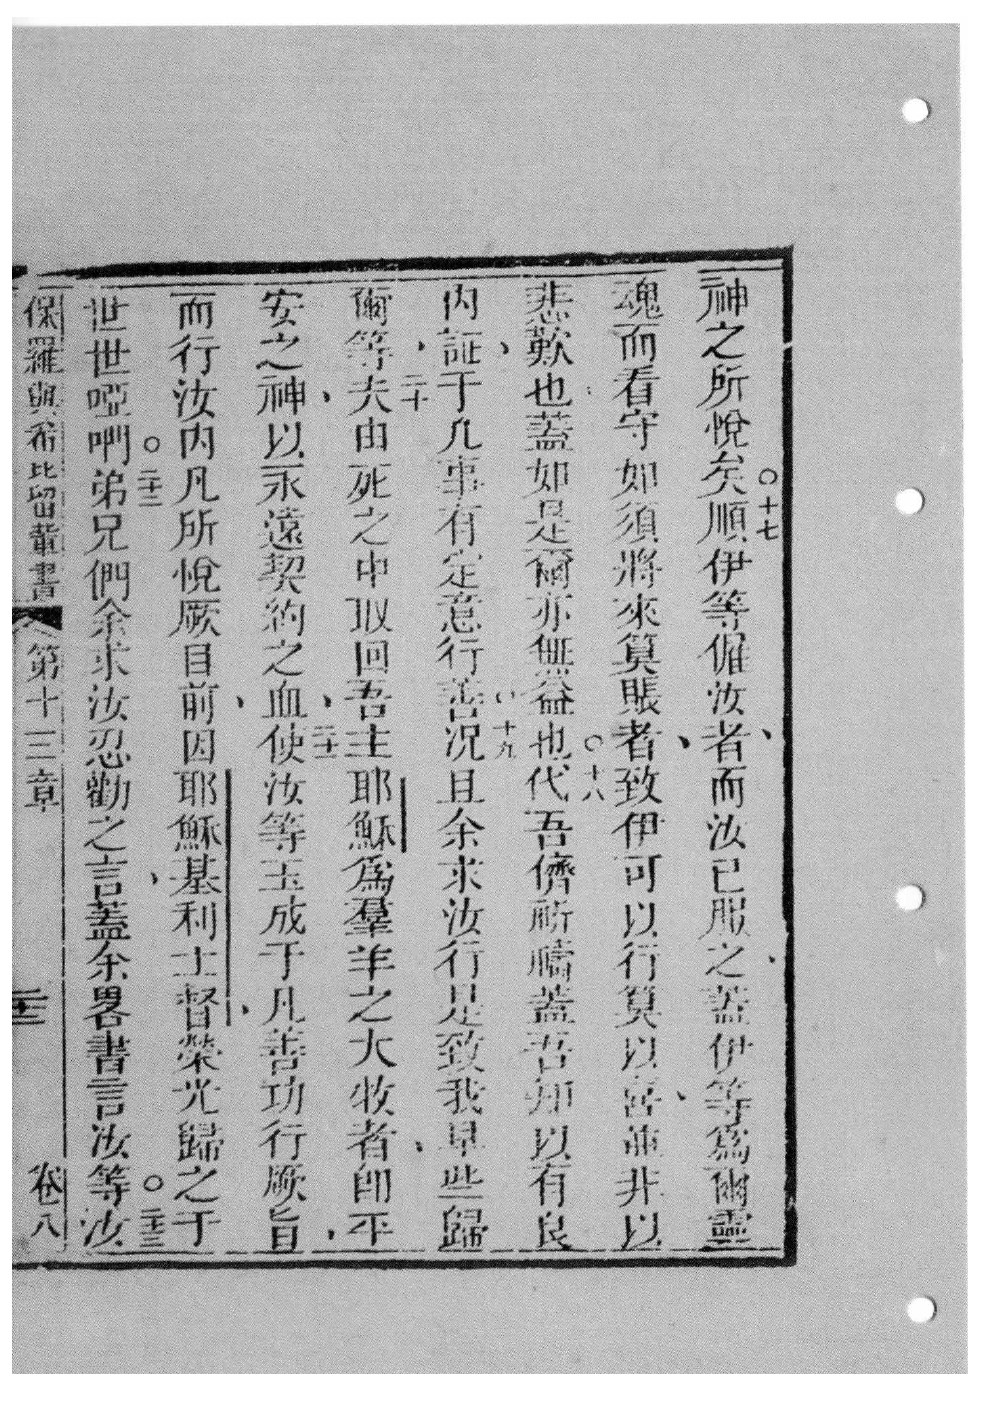 神之所悅矣○十七順伊等偓汝者、而汝已服之、蓋伊等為爾靈
魂而看守如須將來算賬者、致伊可以行算以喜、並非以
悲歎也、蓋如是爾亦無益也○十八代吾儕祈禱蓋吾知以有良
內証、于凡事有定意行善、十九况且余求汝行是致我早些歸
爾等、二十夫由死之中取回吾主耶穌為羣羊之大牧者、卽平
安之神、以永遠契約之血、二十一使汝等玉成于凡善功行厥旨、
而行汝內凡所悅厥目前、因耶穌基利士督、榮光歸之于
世世啞㖿○二十二弟兄們余求汝忍勸之言、蓋余畧書言汝等○二十三汝
保羅與希比留輩書 第十三章 二十三 卷八